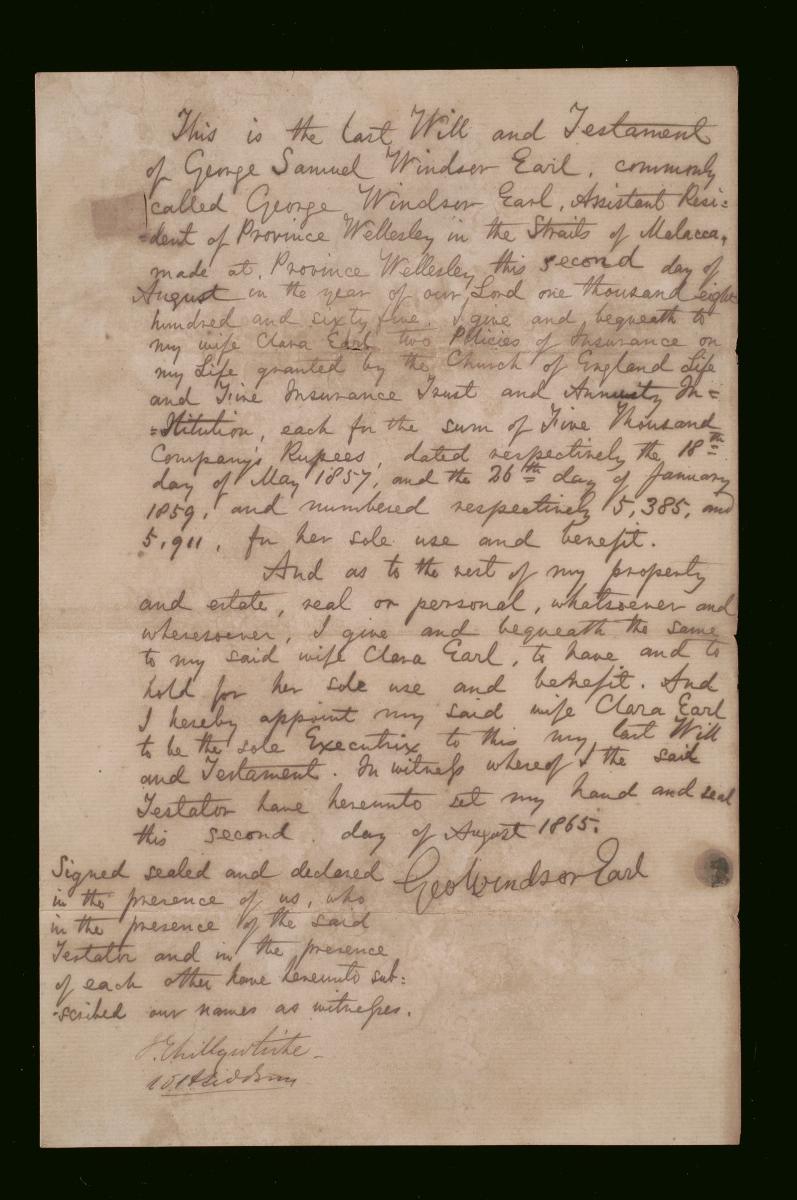 This is the last Will and Testament
of George Samuel Windsor Earl, commonly
called George Windsor Earl, Assistant Resi=
=dent of Province Wellesley in the Straits of Malacca,
made at Province Wellesley this second day of
August in the year of our Lord one thousand eight
hundred and sixty five. I give and bequeath to
my wife Clara Earl two Policies of Insurance on
my Life granted by the Church of England Life
and Fire Insurance Trust and Annuity In=
=stitution, each for the sum of Five Thousand
Company's Rupees, dated respectively the 18th
day of May 1857, and the 26th day of January
1859, and numbered respectively 5,385, and
5,911, for her sole use and benefit.
And as to the rest of my property
and estate, real or personal, whatsoever and
wheresoever, I give and bequeath the same
to my said wife Clara Earl, to have and to
hold for her sole use and benefit. And
I hereby appoint my said wife Clara Earl
to be the sole Executrix to this my last Will
and Testament. In witness whereof I the said
Testator have hereunto set my hand and seal
this second day of August 1865.
Geo Windsor Earl
Signed sealed and declared
in the presence of us, who
in the presence of the said
Testator and in the presence
of each other have hereunto sub=
=scribed our names as witnesses.